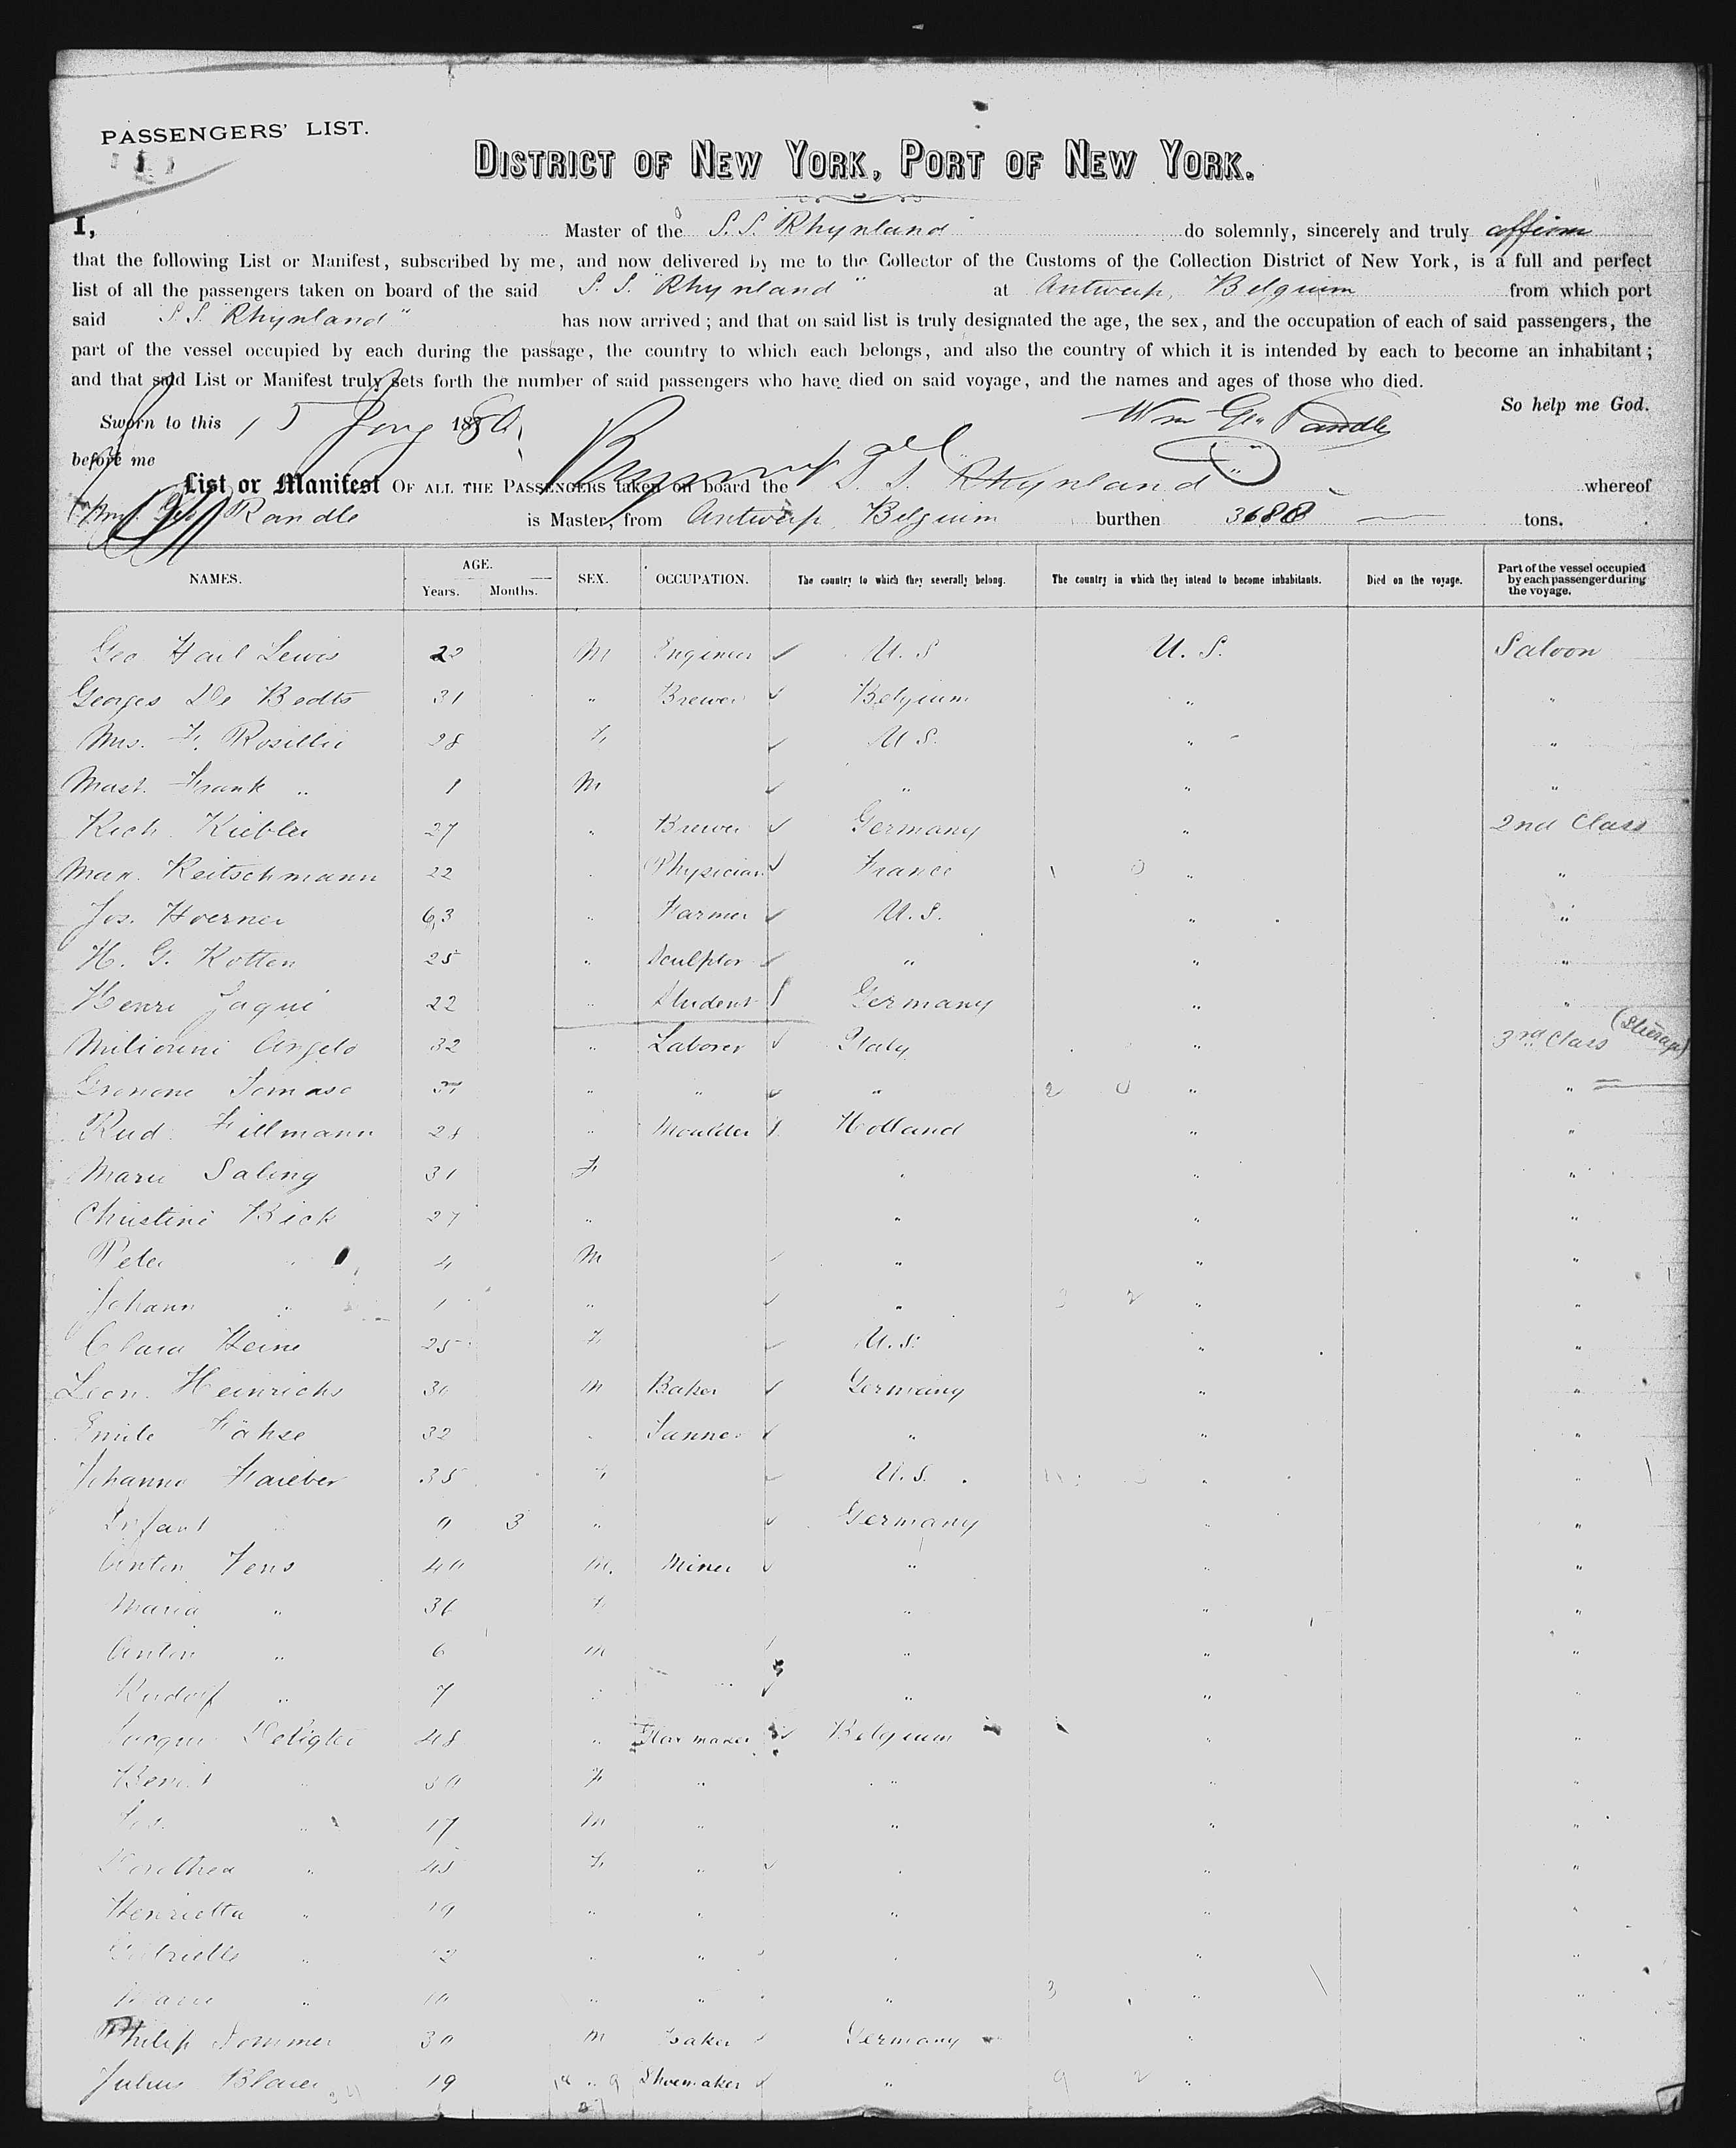 PASSENGERS' LIST.
DISTRICT OF NEW YORK, PORT OF NEW YORK.
I, Master of the S.S. "Rhynland" do solemnly, sincerely and truly affirm
that the following List or Manifest, subscribed by me, and now delivered by me to the Collector of the Customs of the Collection District of New York, is a full and perfect
list of all the passengers taken on board of the said S.S. "Rhynland" at Antwerp, Belgium from which port
said S.S. "Rhynland" has now arrived; and that on said list is truly designated the age, the sex, and the occupation of each of said passengers, the
part of the vessel occupied by each during the passage, the country to which each belongs, and also the country of which it is intended by each to become an inhabitant;
and that said List or Manifest truly sets forth the number of said passengers who have died on said voyage, and the names and ages of those who died.
So help me God.
Sworn to this 15 1880 Wm Geo Randle
before me
List or Manifest OF ALL THE PASSENGERS taken on board the S.S. "Rhynland" whereof
Wm. Geo Randle is Master, from Antwerp, Belgium burthen 3688 tons.
NAMES. AGE. Years. Months. SEX. OCCUPATION. The country to which they severally belong. The country in which they intend to become inhabitants. Died on the voyage. Part of the vessel occupied by each passenger during the voyage.
Geo Hail Lewis 22 M Engineer U.S U.S. Saloon
Georges De Bedts 31 " Brewer Belgium " "
Mrs. F. Rosillie 28 F. U S. " "
Mast. Frank " 1 M " " "
Rich. Kiebler 27 " Brewer Germany " 2nd Class
Max. Reitschmann 22 " Physician France " "
Jos. Hoerner 63 " Farmer U.S. " "
H. G. Rotten 25 " Sculptor " " "
Henri Jaqui 22 " Student Germany " "
Miliorini Angelo 32 " Laborer Italy " 3rd Class (Steerage)
Tomaso 37 " " " " "
Rud. Fillmann 28 " Moulder Holland " "
Marie Saling 31 F " " "
Christine Bick 27 " " " "
Peter " 4 M " " "
Johann " 1 " " " "
Clara Heine 25 F. U.S. " "
Leon. Heinrichs 30 M Baker Germany " "
Emile Fähse 32 " Tanner " " "
Johanna 35 F U.S. " "
Infant " 0 3 " Germany " "
Anton Fens 40 M. Miner " " "
Maria " 36 F " " "
Anton " 6 M " " "
Rudolf " 7 " " " "
48 " Belgium " "
" F " " " "
Jos. " 17 M " " " "
Dorothea " 45 F. " " " "
Henrietta " 19 " " " " "
" 12 " " " " "
Marie " 10 " " " " "
Philip Sommer 30 M Baker Germany " "
Julius 19 " Shoemaker " "